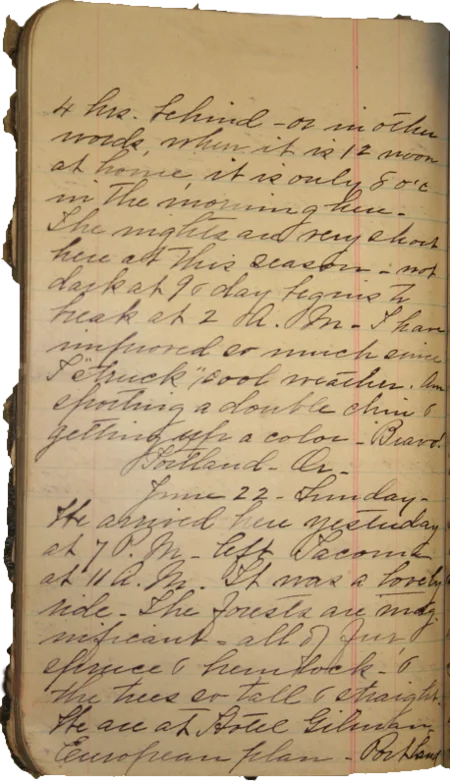 4 hrs. behind - or in other
words, when it is 12 noon
at home, it is only 8 o'c
in the morning here.
The nights are very short
here at this season - not
dark at 9 & day begins to
break at 2 A. M. - I have
improved so much since
I "struck" cool weather. Am
sporting a double chin &
getting up a color - Bravo!
Portland - Or -
June 22 - Sunday -
We arrived here yesterday
at 7 P. M. - left Tacoma
at 11 A. M. It was a lovely
ride - The forests are mag-
nificant - all of fur,
spruce & hemlock - &
the trees so tall & straight.
We are at Hotel Gilman
European plan - Portland